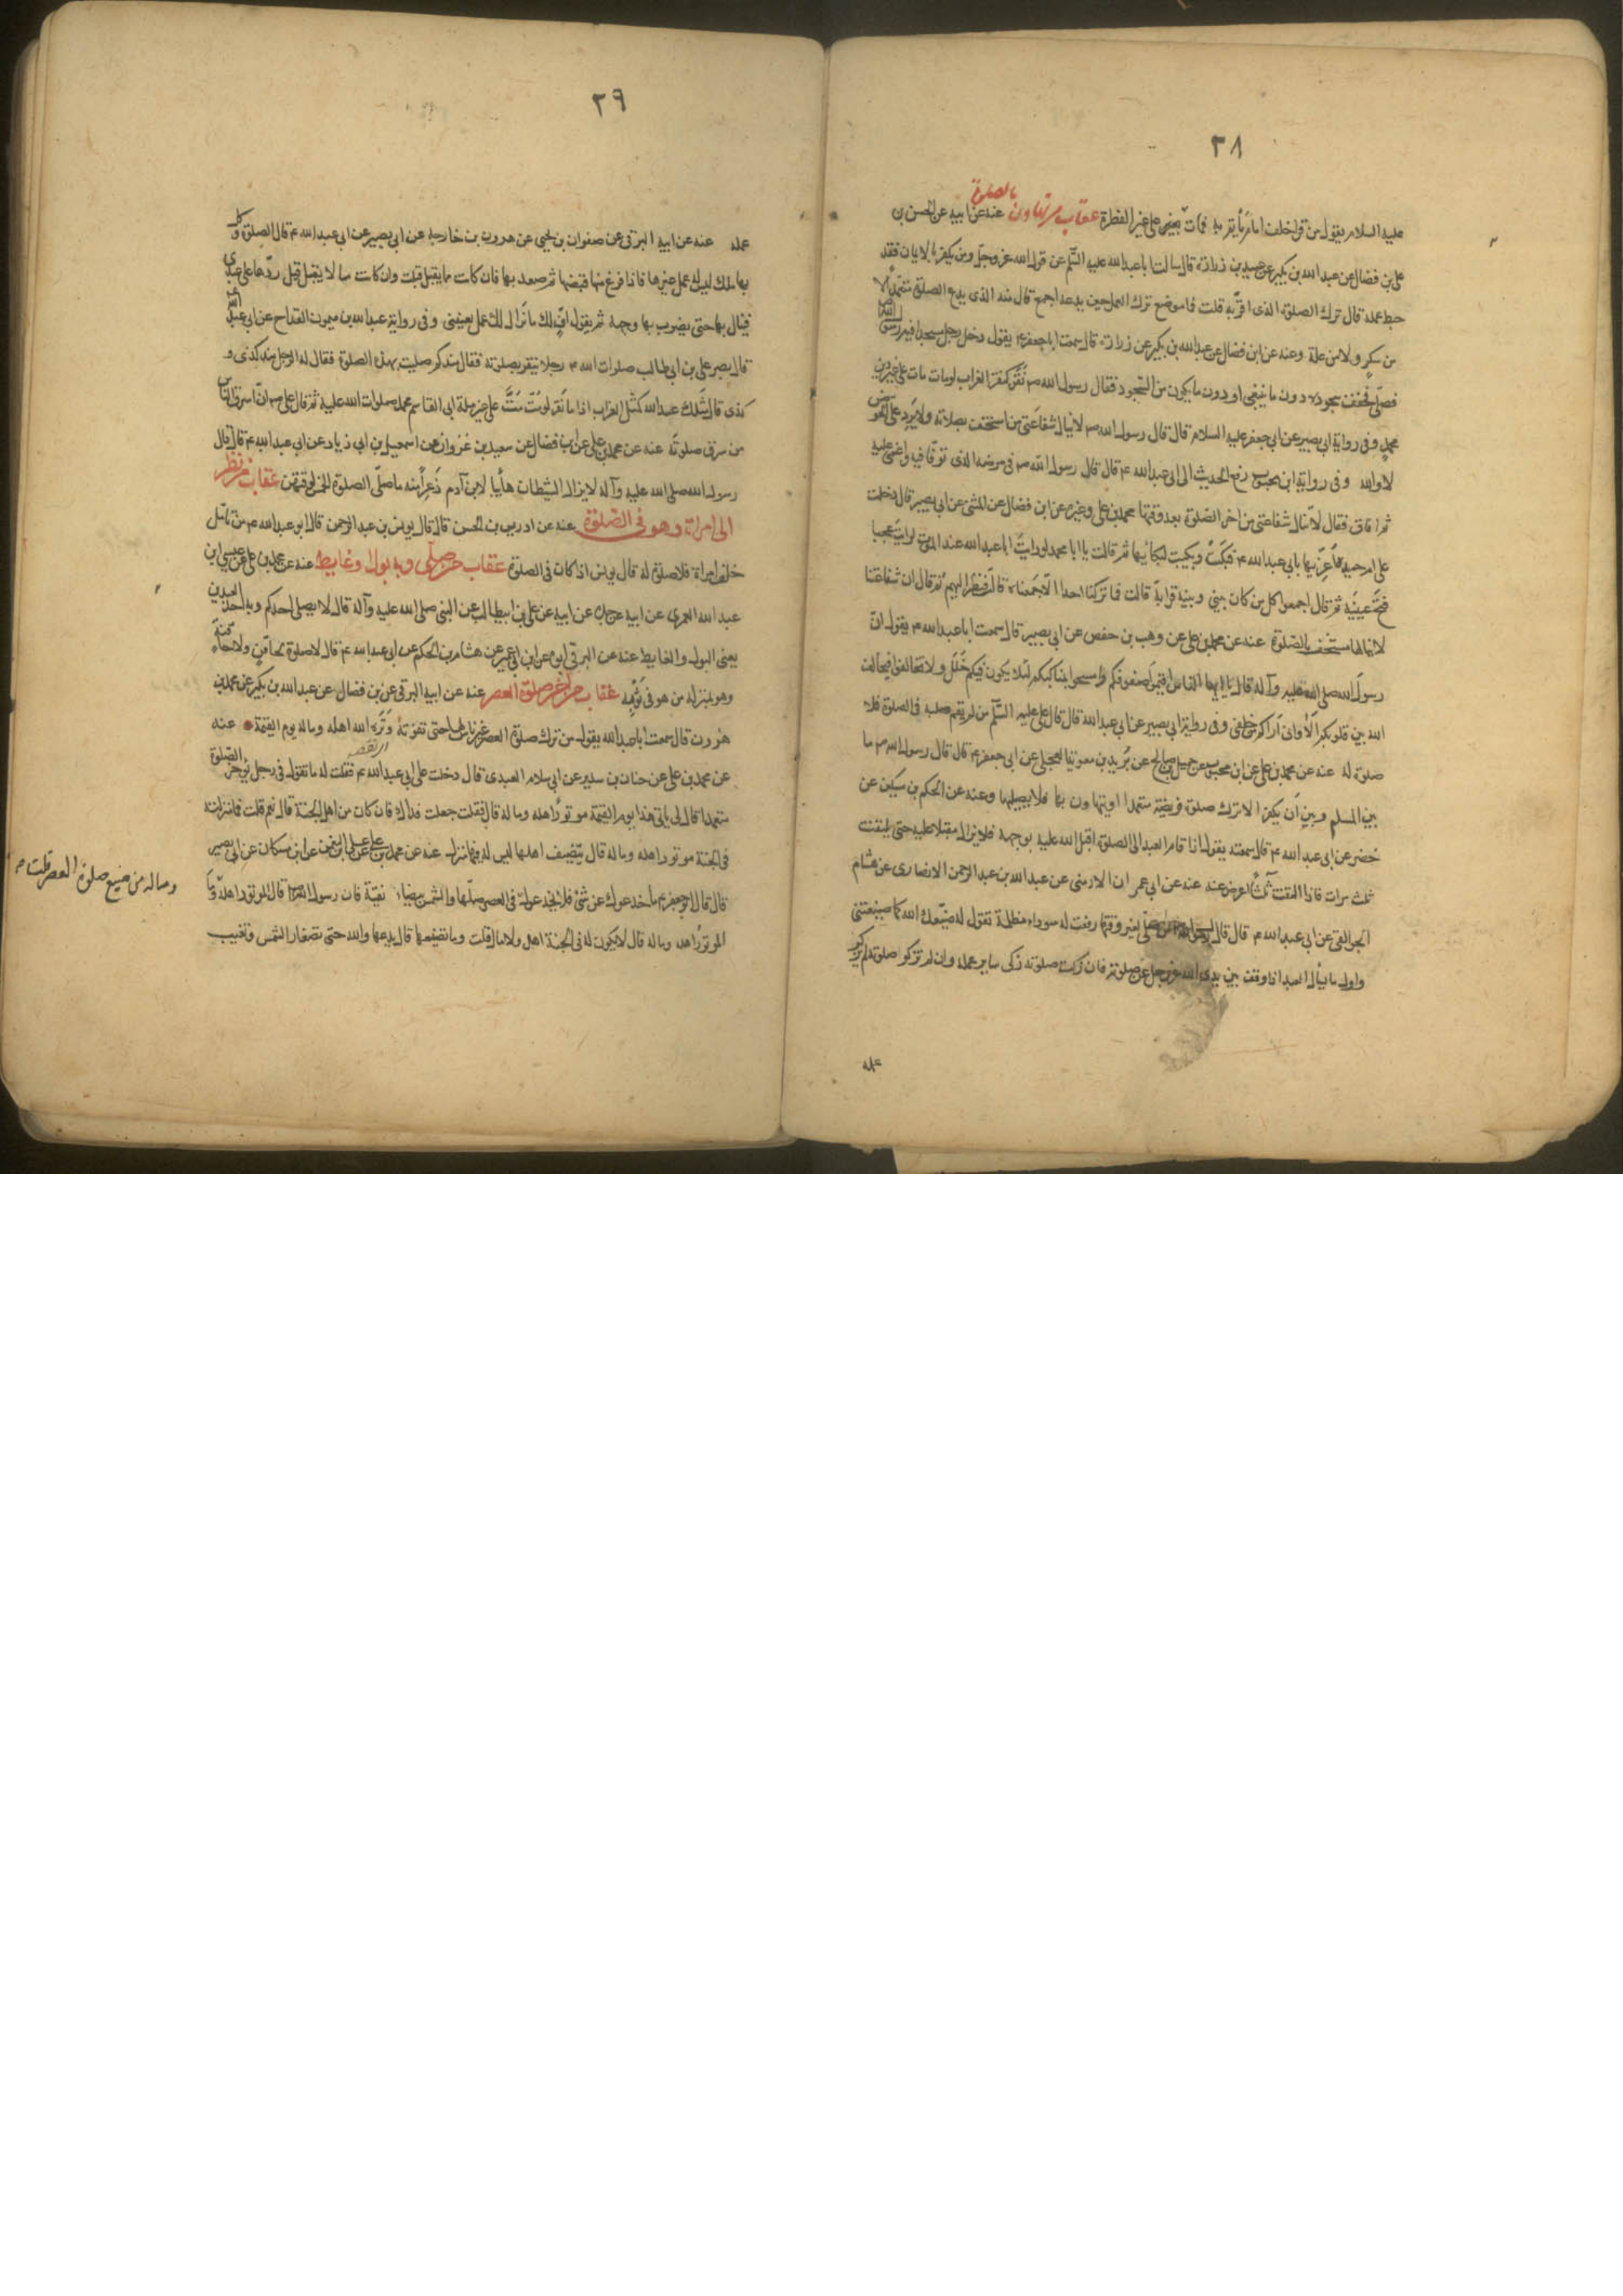 ٢٨
عليه السلام يقول من قرا خلف امام يأتم به فمات بعث على غير الفطرة عقاب من تهاون بالصلوة عنه عن ابيه عن الحسن بن
على بن فضال عن عبد الله بن بكير عن عبيد بن زرارة قال سالت ابا عبد الله عليه السّلم عن قول الله عز وجل ومن يكفر بالايمان فقد
حبط عمله قال ترك الصلوة الذى اقرّ به قلت فما موضع ترك العمل حين يدعه اجمع قال منه الذى يدع الصلوة متعمدا لا
من سكر ولا من علة وعنه عن ابن فضال عن عبد الله بن بكير عن زرارة قال سمعت ابا جعفر ع يقول دخل رجل مسجدا فيه رسول الله
فصلّى فخفف سجوده دون ما ينبغى او دون ما يكون من السّجود فقال رسول الله ص نَقَر كنقر الغراب لو مات مات على غير دين
محمد وفى رواية ابى بصير عن ابى جعفر عليه السلام قال قال رسول الله ص لا ينال شفاعتى من استخف بصلاته ولا يرد على الحوض
لا والله وفى رواية ابن محبوب رفع الحديث الى ابى عبد الله ع قال قال رسول الله ص فى مرضه الذى توفّا فيه واغمى عليه
ثم افاق فقال لا ينال شفاعتى من اخر الصّلوة بعد وقتها محمد بن على وغيره عن ابن فضال عن المثنى عن ابى بصير قال دخلت
على ام حميدة اعزّيها بابى عبد الله ع فبكت وبكيت لبكائها ثم قالت يا ابا محمد لو رايت ابا عبد الله عند الموت لرايت عجبا
فتح عينيه ثم قال اجمعوا كل من كان بينى وبينه قرابة قالت فما تركنا احدا الّا جمعناه قال فنظر اليهم ثم قال ان شفاعتنا
لا ينالها مستخف بالصّلوة عنه عن محمد بن على عن وهب بن حفص عن ابى بصير قال سمعت ابا عبد الله ع يقول انّ
رسول الله صلى الله عليه وآله قال يا ايها الناس اقيموا صفوفكم وامسحوا بمناكبكم لئلا يكون فيكم خَلَل ولا تخالفوا فيخالف
الله بين قلوبكم الا وانى اراكم من خلفى وفى رواية ابى بصير عن ابى عبد الله قال قال على عليه السّلم من لم يقم صلبه فى الصلوة فلا
صلوة له عنه عن محمد بن على عن ابن محبوب عن جميل بن صالح عن بُريد بن معوية العجلى عن ابى جعفر ع قال قال رسول الله ص ما
بين المسلم وبين ان يكفر الا ترك صلوة فريضة متعمدا او يتهاون بها فلا يصليها وعنه عن الحكم بن مسكين عن
خضر عن ابى عبد الله ع قال سمعته يقول اذا قام العبد الى الصلوة اقبل الله عليه بوجهه فلا يزال مقبلا عليه حتى يلتفت
ثلث مرات فاذا التفت ثلثا اعرض عنه عنه عن ابى عمران الارمنى عن عبد الله بن عبد الرحمن الانصارى عن هشام
الجواليقى عن ابى عبد الله ع قال قال رسول الله من صلّى لغير وقتها رفعت له سوداء مظلمة تقول له ضيّعك الله كما ضيّعتنى
واول ما يسأل العبد اذا وقف بين يدى الله عز وجل عن صلوته فان زكت صلوته زكى ساير عمله وان لم تزكو صلوته لم يزك
عمله
٢٩
عمله عنه عن ابيه البرقى عن صفوان بن يحيى عن هرون بن خارجة عن ابى بصير عن ابى عبد الله ع قال الصلوة وكل
بها ملك ليس له عمل غيرها فاذا فرغ منها قبضها ثم صعد بها فان كانت مما يقبل قبلت وان كانت مما لا يقبل قيل ردّها على عبدى
فينزل بها حتى يضرب بها وجهه ثم يقول افّ لك ما يزال لك عمل يعيينى وفى رواية عبد الله بن ميمون القداح عن ابى عبد الله
قال بصر على بن ابى طالب صلوات الله ع رجلا ينقر بصلوته فقال منذ كم صليت بهذه الصلوة فقال له الرجل منذ كذى و
كذى قال مثلك عند الله كمثل الغراب اذا ما نقر لو مت متَّ على غير ملة ابى القاسم محمد صلوات الله عليه ثم قال على ع انّ اسرق الناس
من سرق صلوته عنه عن محمد بن على عن ابن فضال عن سعيد بن غزوان عن اسمعيل بن ابى زياد عن ابى عبد الله ع قال قال
رسول الله صلى الله عليه وآله لا يزال الشيطان هائبا لابن آدم ذَعِرا منه ما صلّى الصلوة الخمس لوقتهن عقاب من نظر
الى امراة وهو فى الصّلوة عنه عن ادريس بن الحسن قال قال يونس بن عبد الرحمن قال ابو عبد الله ع من تامل
خلف امراة فلا صلوة له قال يونس اذا كان فى الصلوة عقاب من صلّى وبه بول او غايط عنه عن محمد بن على عن عيسى بن
عبد الله العمرى عن ابيه عن جده عن ابيه عن على بن ابيطالب عن النبى صلى الله عليه وآله قال لا يصلى احدكم وبه احد العصرين
يعنى البول والغايط عنه عن البرقى ابوه عن ابن ابى عمير عن هشام بن الحكم عن ابى عبد الله ع قال لا صلوة لحاقن ولا لحاقنة
وهو بمنزلة من هو فى ثوبه عقاب من اخر صلوة العصر عنه عن ابيه البرقى عن بن فضال عن عبد الله بن بكير عن محمد بن
هرون قال سمعت ابا عبد الله يقول من ترك صلوة العصر غير ناس لها حتى تفوته وَتَرَه الله اهله وماله يوم القيمة عنه
عن محمد بن على عن حنان بن سدير عن ابى سلام العبدى قال دخلت على ابى عبد الله ع فقلت له ما تقول فى رجل يؤخر الصلوة
متعمدا قال لى ياتى هذا يوم القيمة موتورا اهله وماله قال فقلت جعلت فداك فان كان من اهل الجنة قال نعم قلت فما منزلته
فى الجنة موتور اهله وماله قال يتضيف اهلها ليس له فيها منزل عنه عن محمد بن على عن على بن النعمن عن ابن مسكان عن ابى بصير
قال قال ابو جعفر ع ما خدعوك عن شئ فلا يخدعونك فى العصر صلّها والشمس بيضاء نقيّة فان رسول الله قال الموتور اهله و
الموتور اهله وماله قال لا يكون له فى الجنة اهل ولا مال قلت وما تضيعها قال يدعها والله حتى تصفار الشمس وتغيب
وماله من ضيع صلوة العصر قلت ما